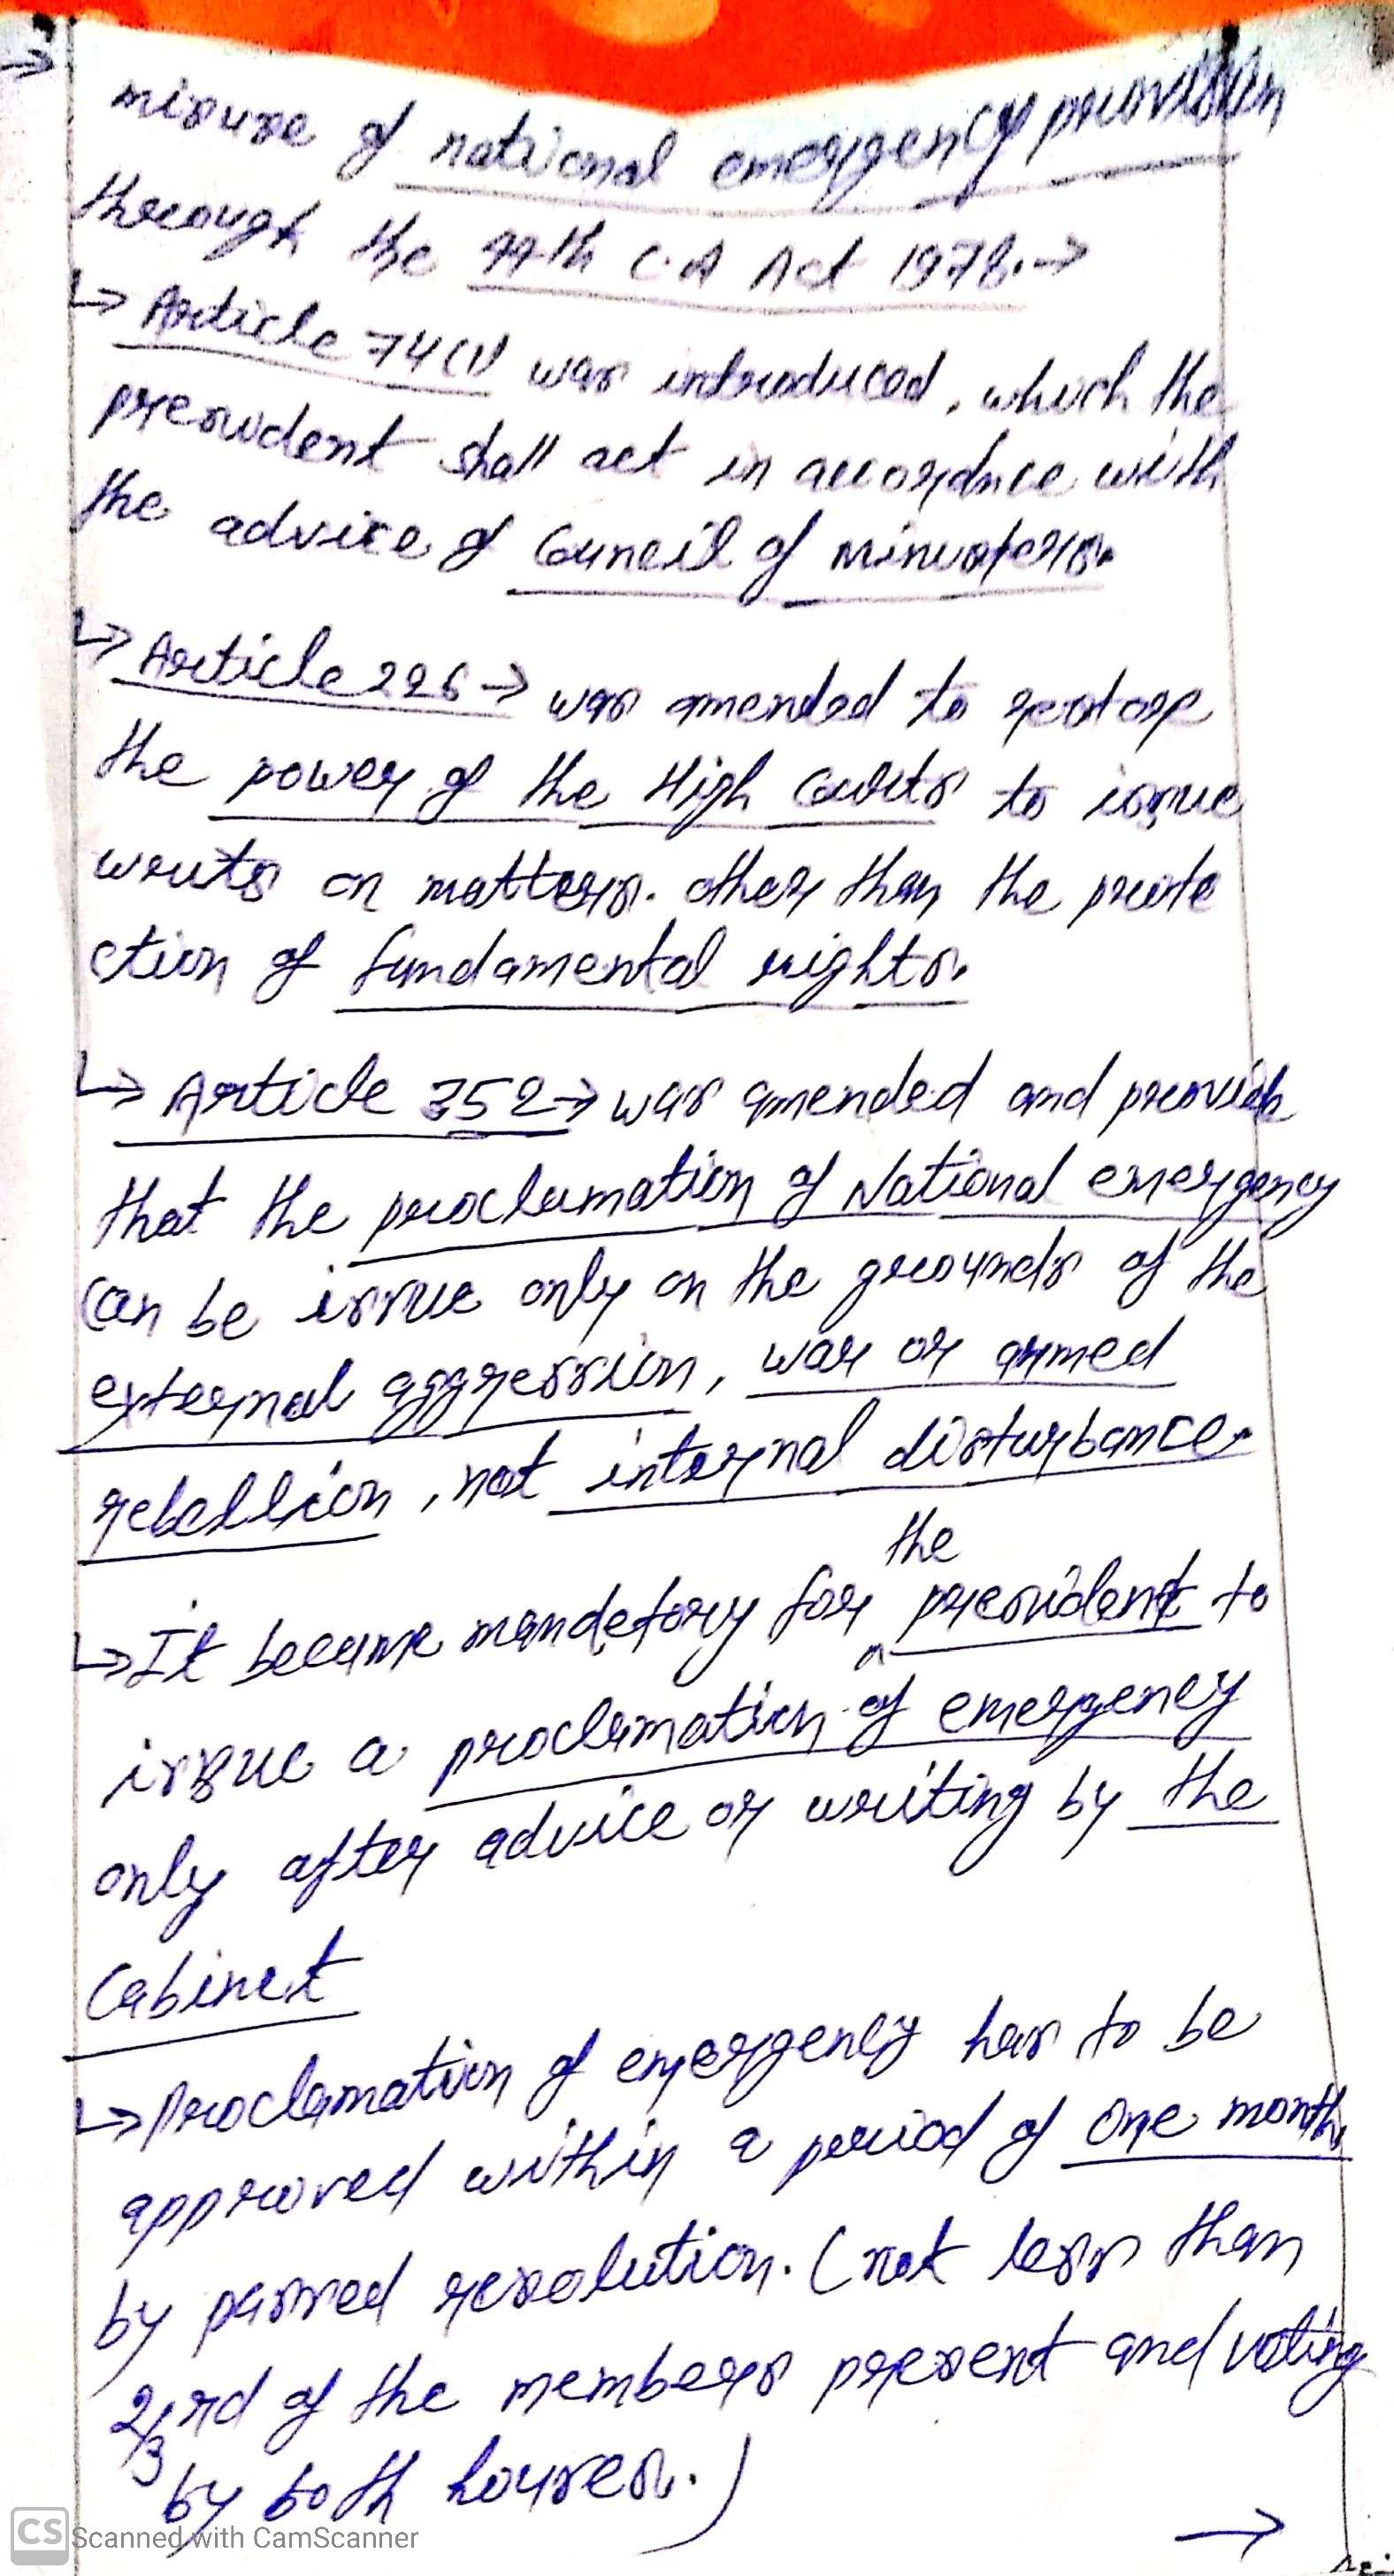 →
misuse of national emergency provision
through the 44th C.A Act 1978. →
↳ Article 74(1) was introduced, which the
president shall act in accordnce with
the advice of Council of ministers.
↳ Article 226 → was amended to restore
the power of the High Courts to issue
writs on matters. other than the prote
ction of fundamental rights.
↳ Article 352 → was amended and provide
that the proclamation of National emergency
can be issue only on the grounds of the
external aggression, war or armed
rebellion, not internal disturbance.
the
↳ It became mandetory for ^ president to
issue a proclamation of emergency
only after advice or writing by the
Cabinet
↳ Proclamation of emergency has to be
approved within a period of One month
by passed resolution. (not less than
2/3rd of the members present and voting
by both houses.)
→
CS Scanned with CamScanner